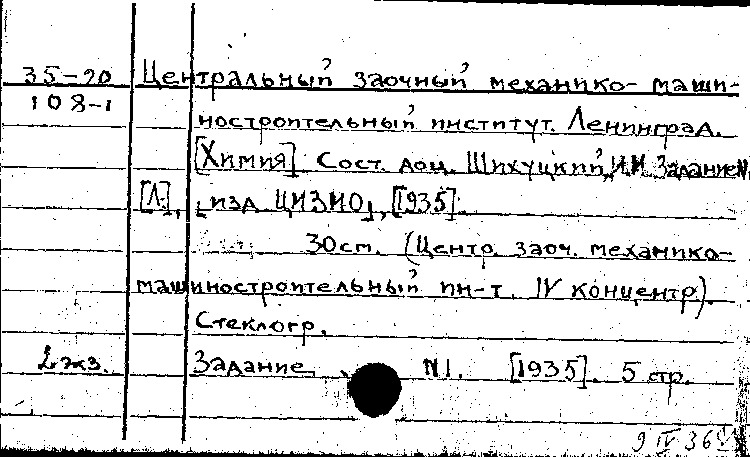 35-20 Центральный заочный механико-маши-
108-1 ностроительный институт. Ленинград.
[Химия]. Сост. доц. Шихуцкий, И.И. Задание N
[Л.], [изд. ЦИЗМО], [1935].
30 см. (Центр. заоч. механико-
машиностроительный ин-т. IV концентр).
Стеклогр.
2 экз. Задание N1. [1935]. 5 стр.
9 IV 36